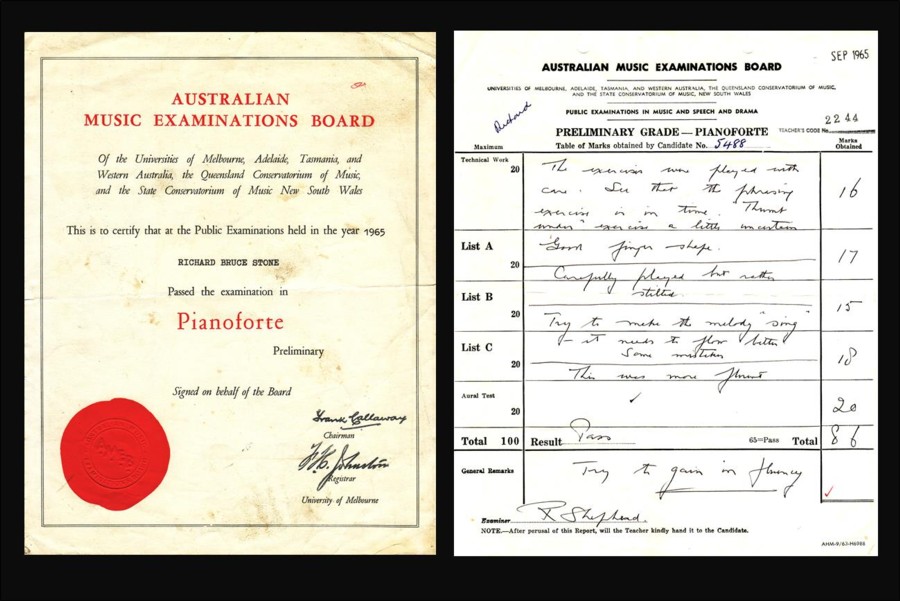 AUSTRALIAN
MUSIC EXAMINATIONS BOARD
Of the Universities of Melbourne, Adelaide, Tasmania, and
Western Australia, the Queensland Conservatorium of Music,
and the State Conservatorium of Music New South Wales
This is to certify that at the Public Examinations held in the year 1965
RICHARD BRUCE STONE
Passed the examination in
Pianoforte
Preliminary
Signed on behalf of the Board
Frank Callaway
Chairman
F.H. Johnston
Registrar
University of Melbourne
SEP 1965
AUSTRALIAN MUSIC EXAMINATIONS BOARD
UNIVERSITIES OF MELBOURNE, ADELAIDE, TASMANIA, AND WESTERN AUSTRALIA, THE QUEENSLAND CONSERVATORIUM OF MUSIC,
AND THE STATE CONSERVATORIUM OF MUSIC, NEW SOUTH WALES
PUBLIC EXAMINATIONS IN MUSIC AND SPEECH AND DRAMA
Richard
PRELIMINARY GRADE—PIANOFORTE TEACHER'S CODE No. 2244
Maximum Table of Marks obtained by Candidate No. 5488 Marks Obtained
Technical Work 20 The exercises were played with 16
care. See that the phrasing
exercise is in time. "Thumb
under" exercise a little uncertain
List A 20 Good finger shape. 17
Carefully played but rather
stilted.
List B 20 Try to make the melody "sing" 15
– it needs to flow better
List C 20 Some mistakes 18
This was more fluent
Aural Test 20 ✓ 20
Total 100 Result Pass 65=Pass Total 86
General Remarks Try to gain in fluency
Examiner R Shepherd.
NOTE.—After perusal of this Report, will the Teacher kindly hand it to the Candidate.
AHM-9/63-H6988